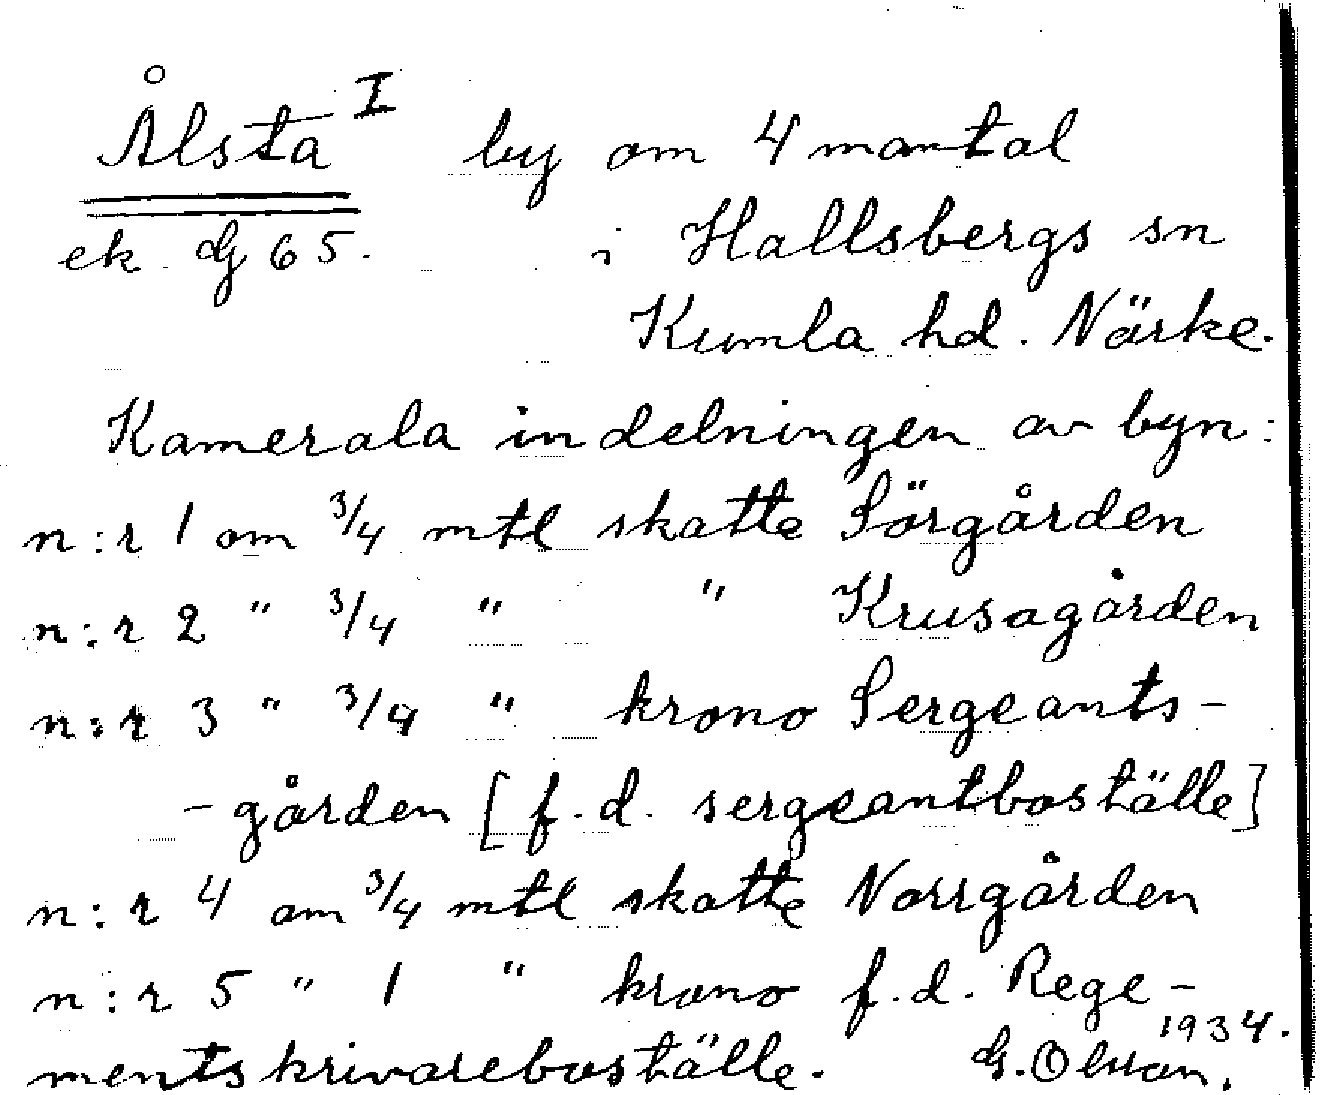 Ålsta I by om 4 mantal
ek dg 65. i Hallsbergs sn
Kumla hd. Närke.
Kamerala indelningen av byn:
n:r 1 om 3/4 mtl skatte Sörgården
n:r 2 " 3/4 " " Krusagården
n:r 3 " 3/4 " krono Sergeants-
-gården [f.d. sergeantboställe]
n:r 4 om 3/4 mtl skatte Norrgården
n:r 5 " 1 " krono f.d. Rege-
mentskrivareboställe. G. Olsson, 1934.